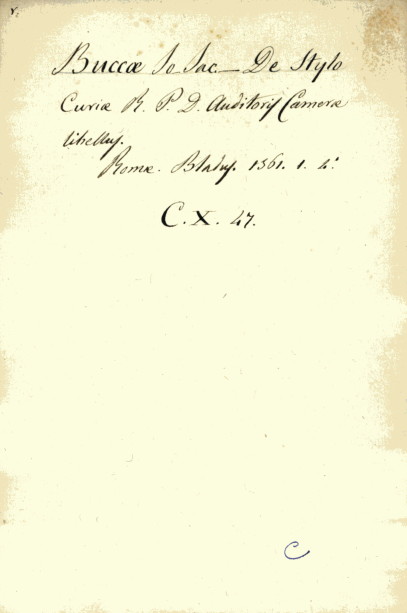 Buccæ Jo Jac — De Stylo
Curiæ R. P. D. Auditorij Cameræ
libellus.
Romæ. Bladus. 1561. 1. 4.º
C. X. 47.
C